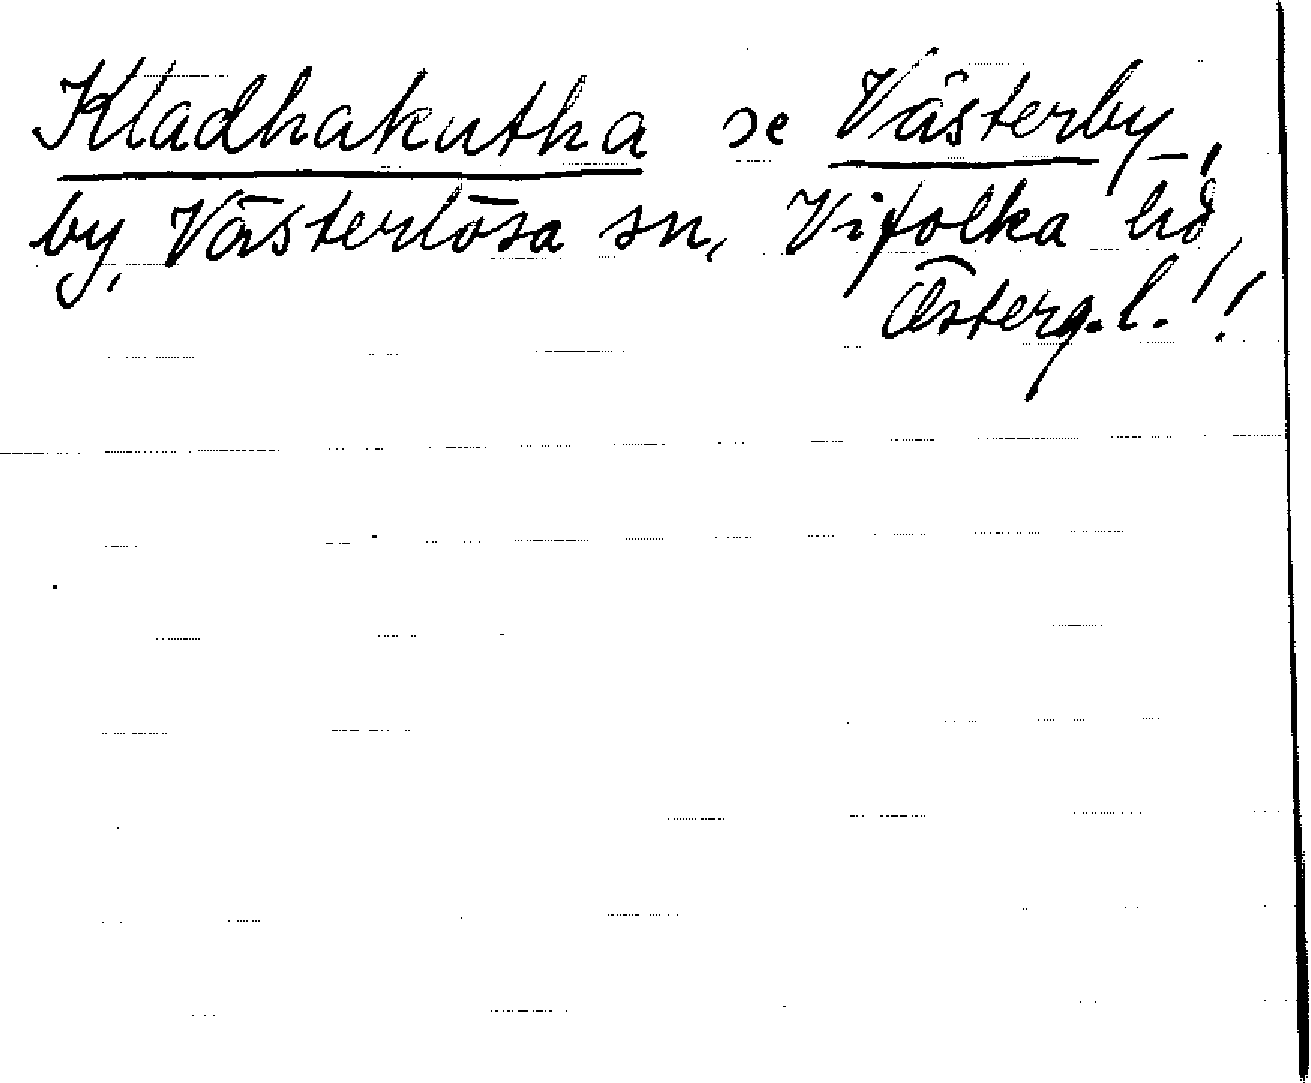 Kladhakutha se Västerby,
by, Västerlösa sn, Vifolka hd,
Österg. l. !